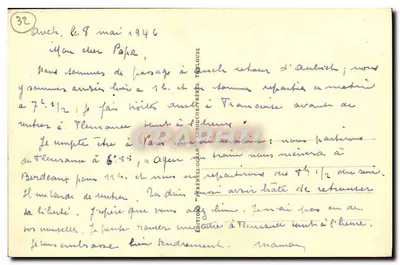 32
Auch, le 8 mai 1946
Mon cher Papa,
Nous sommes de passage à Auch retour d'; nous
y sommes arrivés hier à 1 h. et en sommes repartis ce matin
à 7h 1/2, je fais visiter Auch à Françoise avant de
rentrer à Fleurance tout à l'heure.
Je compte être à Paris matin : nous partirons
de Fleurance à 6h, à Agen un train nous mènera à
Bordeaux pour 11h. et nous en repartirons vers 8h 1/2 du soir.
Il me tarde de rentrer. Tu dois aussi avoir hâte de retrouver
ta liberté. J'espère que vous allez bien. Je n'ai pas eu de
vos nouvelles. Je pense à Fleurance tout à l'heure.
Je vous embrasse bien tendrement. maman
CARTOP
EDITIONS "PYRÉNÉES-OCÉAN" LABOUCHE FRÈRES, TOULOUSE